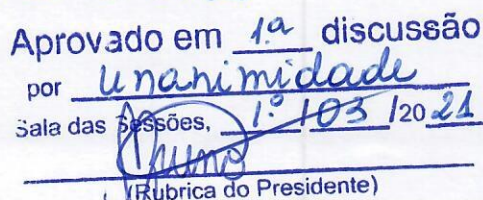 Aprovado em 1.ª discussão
por unanimidade
Sala das Sessões, 1.º /03 /20 21
(Rubrica do Presidente)